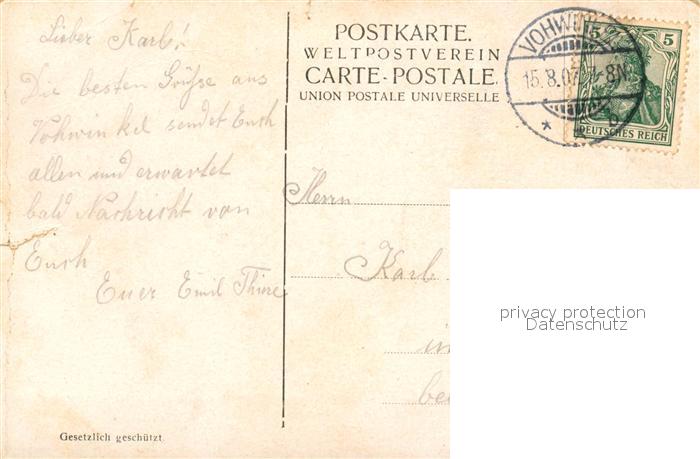 Lieber Karl!
Die besten Grüße aus
Vohwinkel sendet Euch
allen und erwartet
bald Nachricht von
Euch
Euer Emil
Gesetzlich geschützt.
POSTKARTE.
WELTPOSTVEREIN
CARTE-POSTALE.
UNION POSTALE UNIVERSELLE
VOHW
15.8.07 8N
5 5
DEUTSCHES REICH
Herrn
Karl
in
privacy protection
Datenschutz